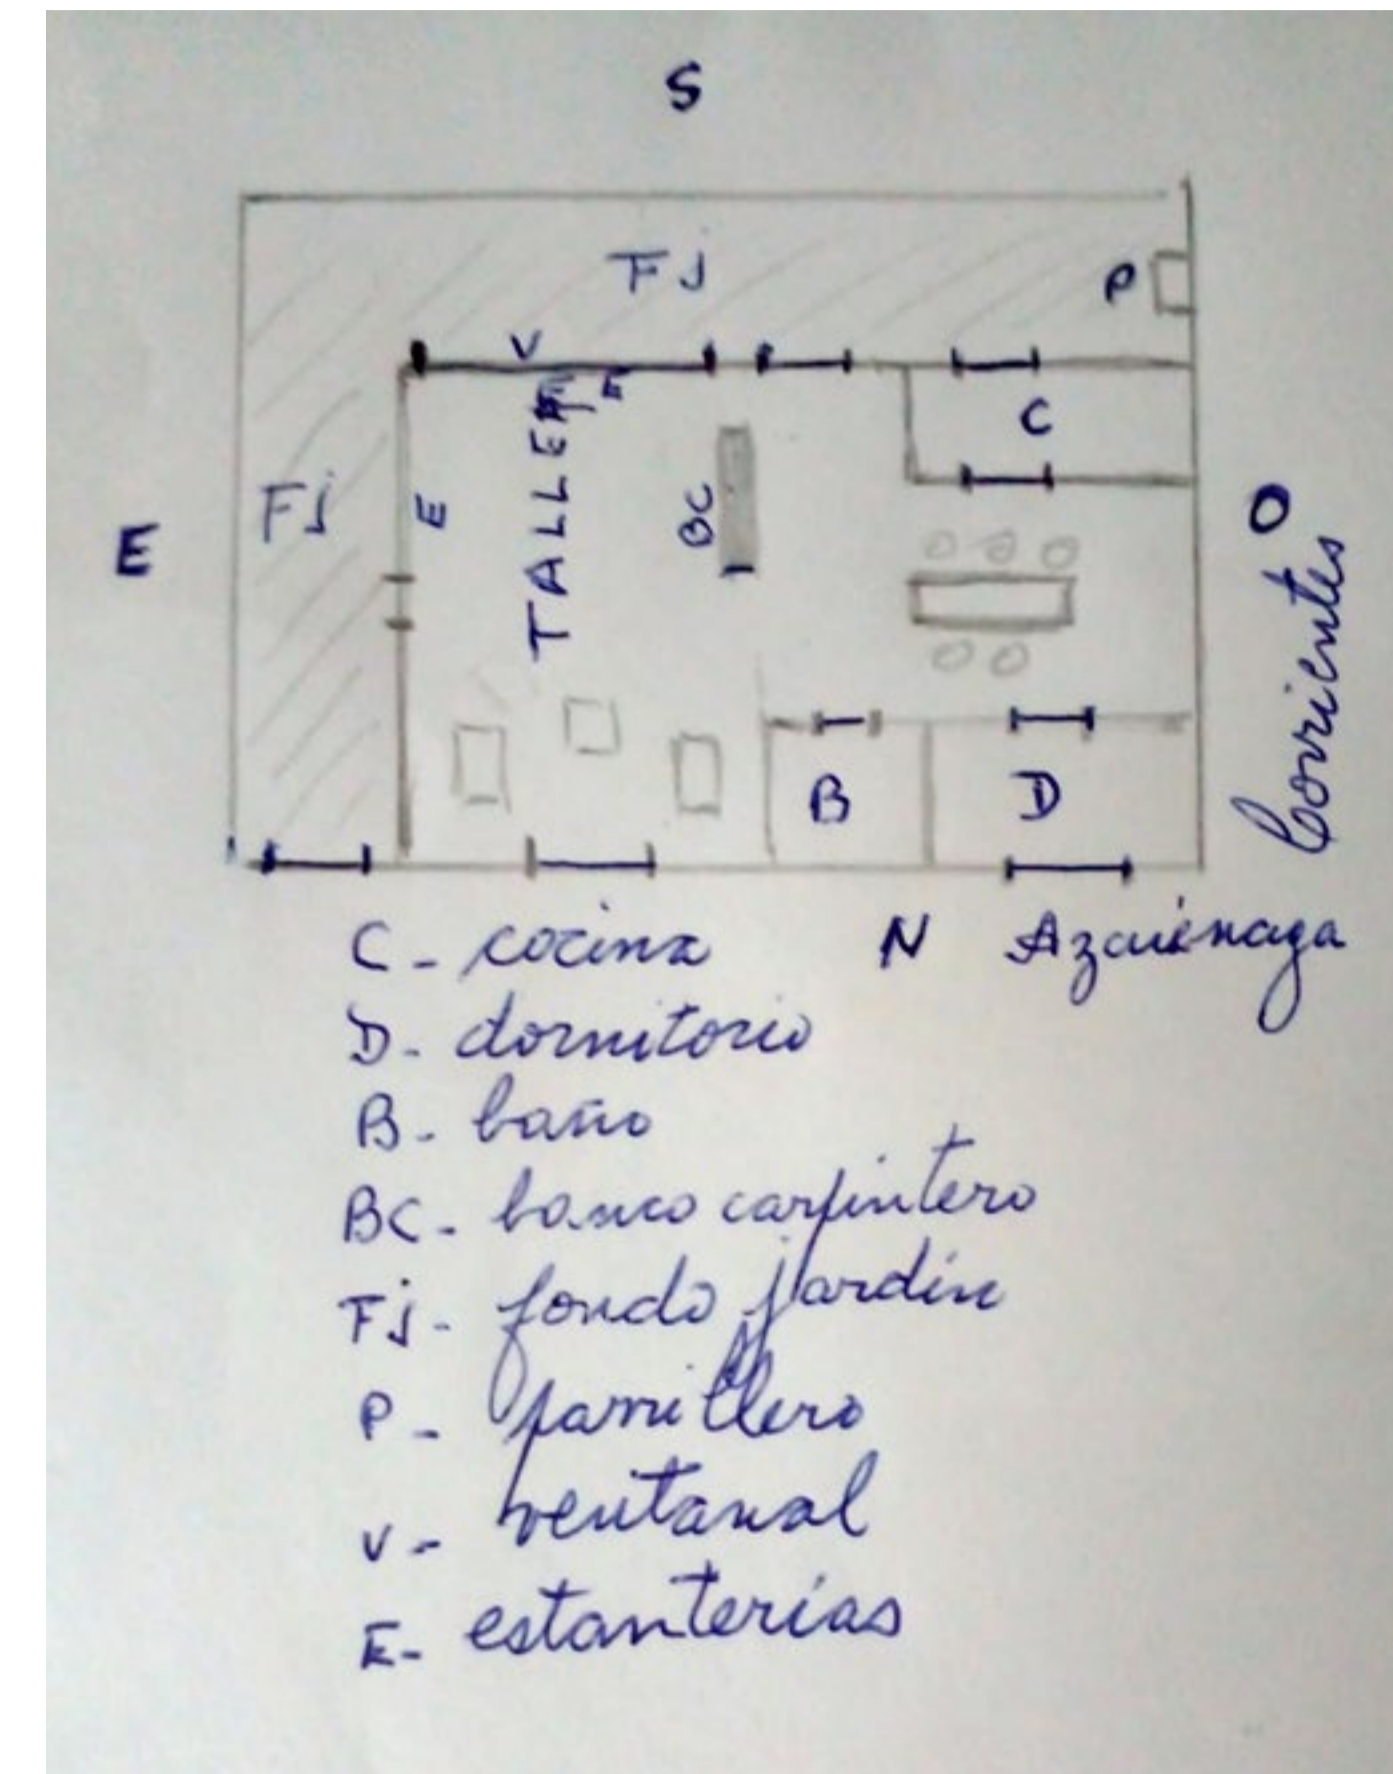 S
FJ
P
V
E
C
FJ
E
E
TALLER
BC
O
Corrientes
B
D
N Azcuénaga
C - cocina
D - dormitorio
B - baño
BC - banco carpintero
FJ - fondo jardín
P - parrillero
V - ventanal
E - estanterías